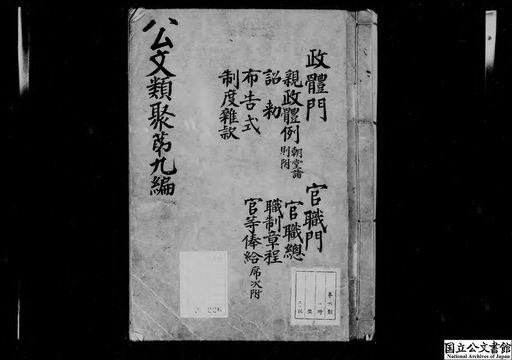 公文類聚第九編
政體門
親政體例 朝堂諸則附
詔勅
布告式
制度雜款
官職門
官職總
職制章程
官等俸給 席次附
226
国立公文書館
National Archives of Japan